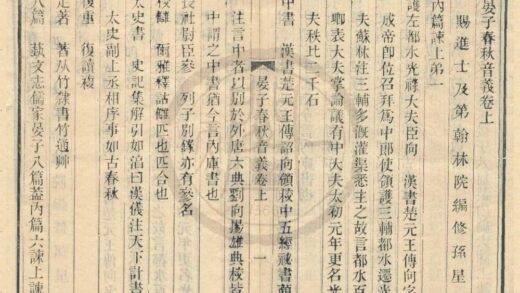 晏子春秋音義卷上
賜進士及第翰林院編修孫星
內篇諫上第一
護左都水光祿大夫臣向 漢書楚元王傳向字
成帝卽位召拜爲中郎使領護三輔都水遷光
夫蘇林注三輔多漑灌渠悉主之故言都水百
卿表大夫掌論議有中大夫太初元年更名光
夫秩比二千石
中書 漢書楚元王傳詔向領校中五經祕書顏
晏子春秋音義卷上 一
注言中者以別於外唐六典劉向揚雄典校皆
中謂之中書猶今言內庫書也
長社尉臣參 列子別錄亦有參名
校讎 爾雅釋詁讎匹也匹合也
太史書 史記集解引如淳曰漢儀注天下計書
太史副上丞相序事如古春秋
復重 復讀複
定著 著从竹隸書竹通艸
篇 蓺文志儒家晏子八篇蓋內篇六諫上諫